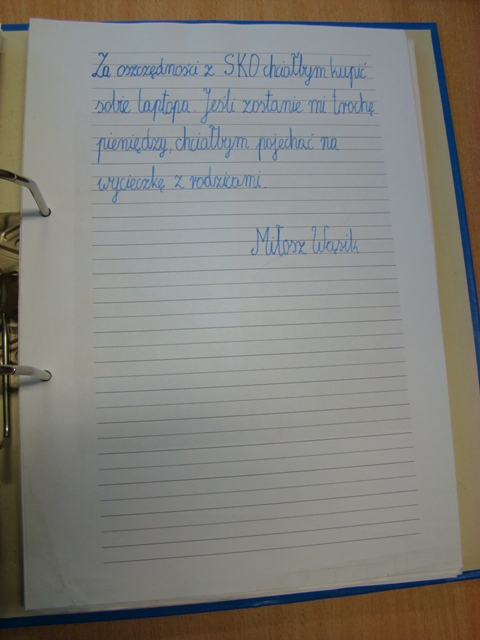 Za oszczędności z SKO chciałbym kupić
sobie laptopa. Jeśli zostanie mi trochę
pieniędzy, chciałbym pojechać na
wycieczkę z rodzicami.
Miłosz Wąsik